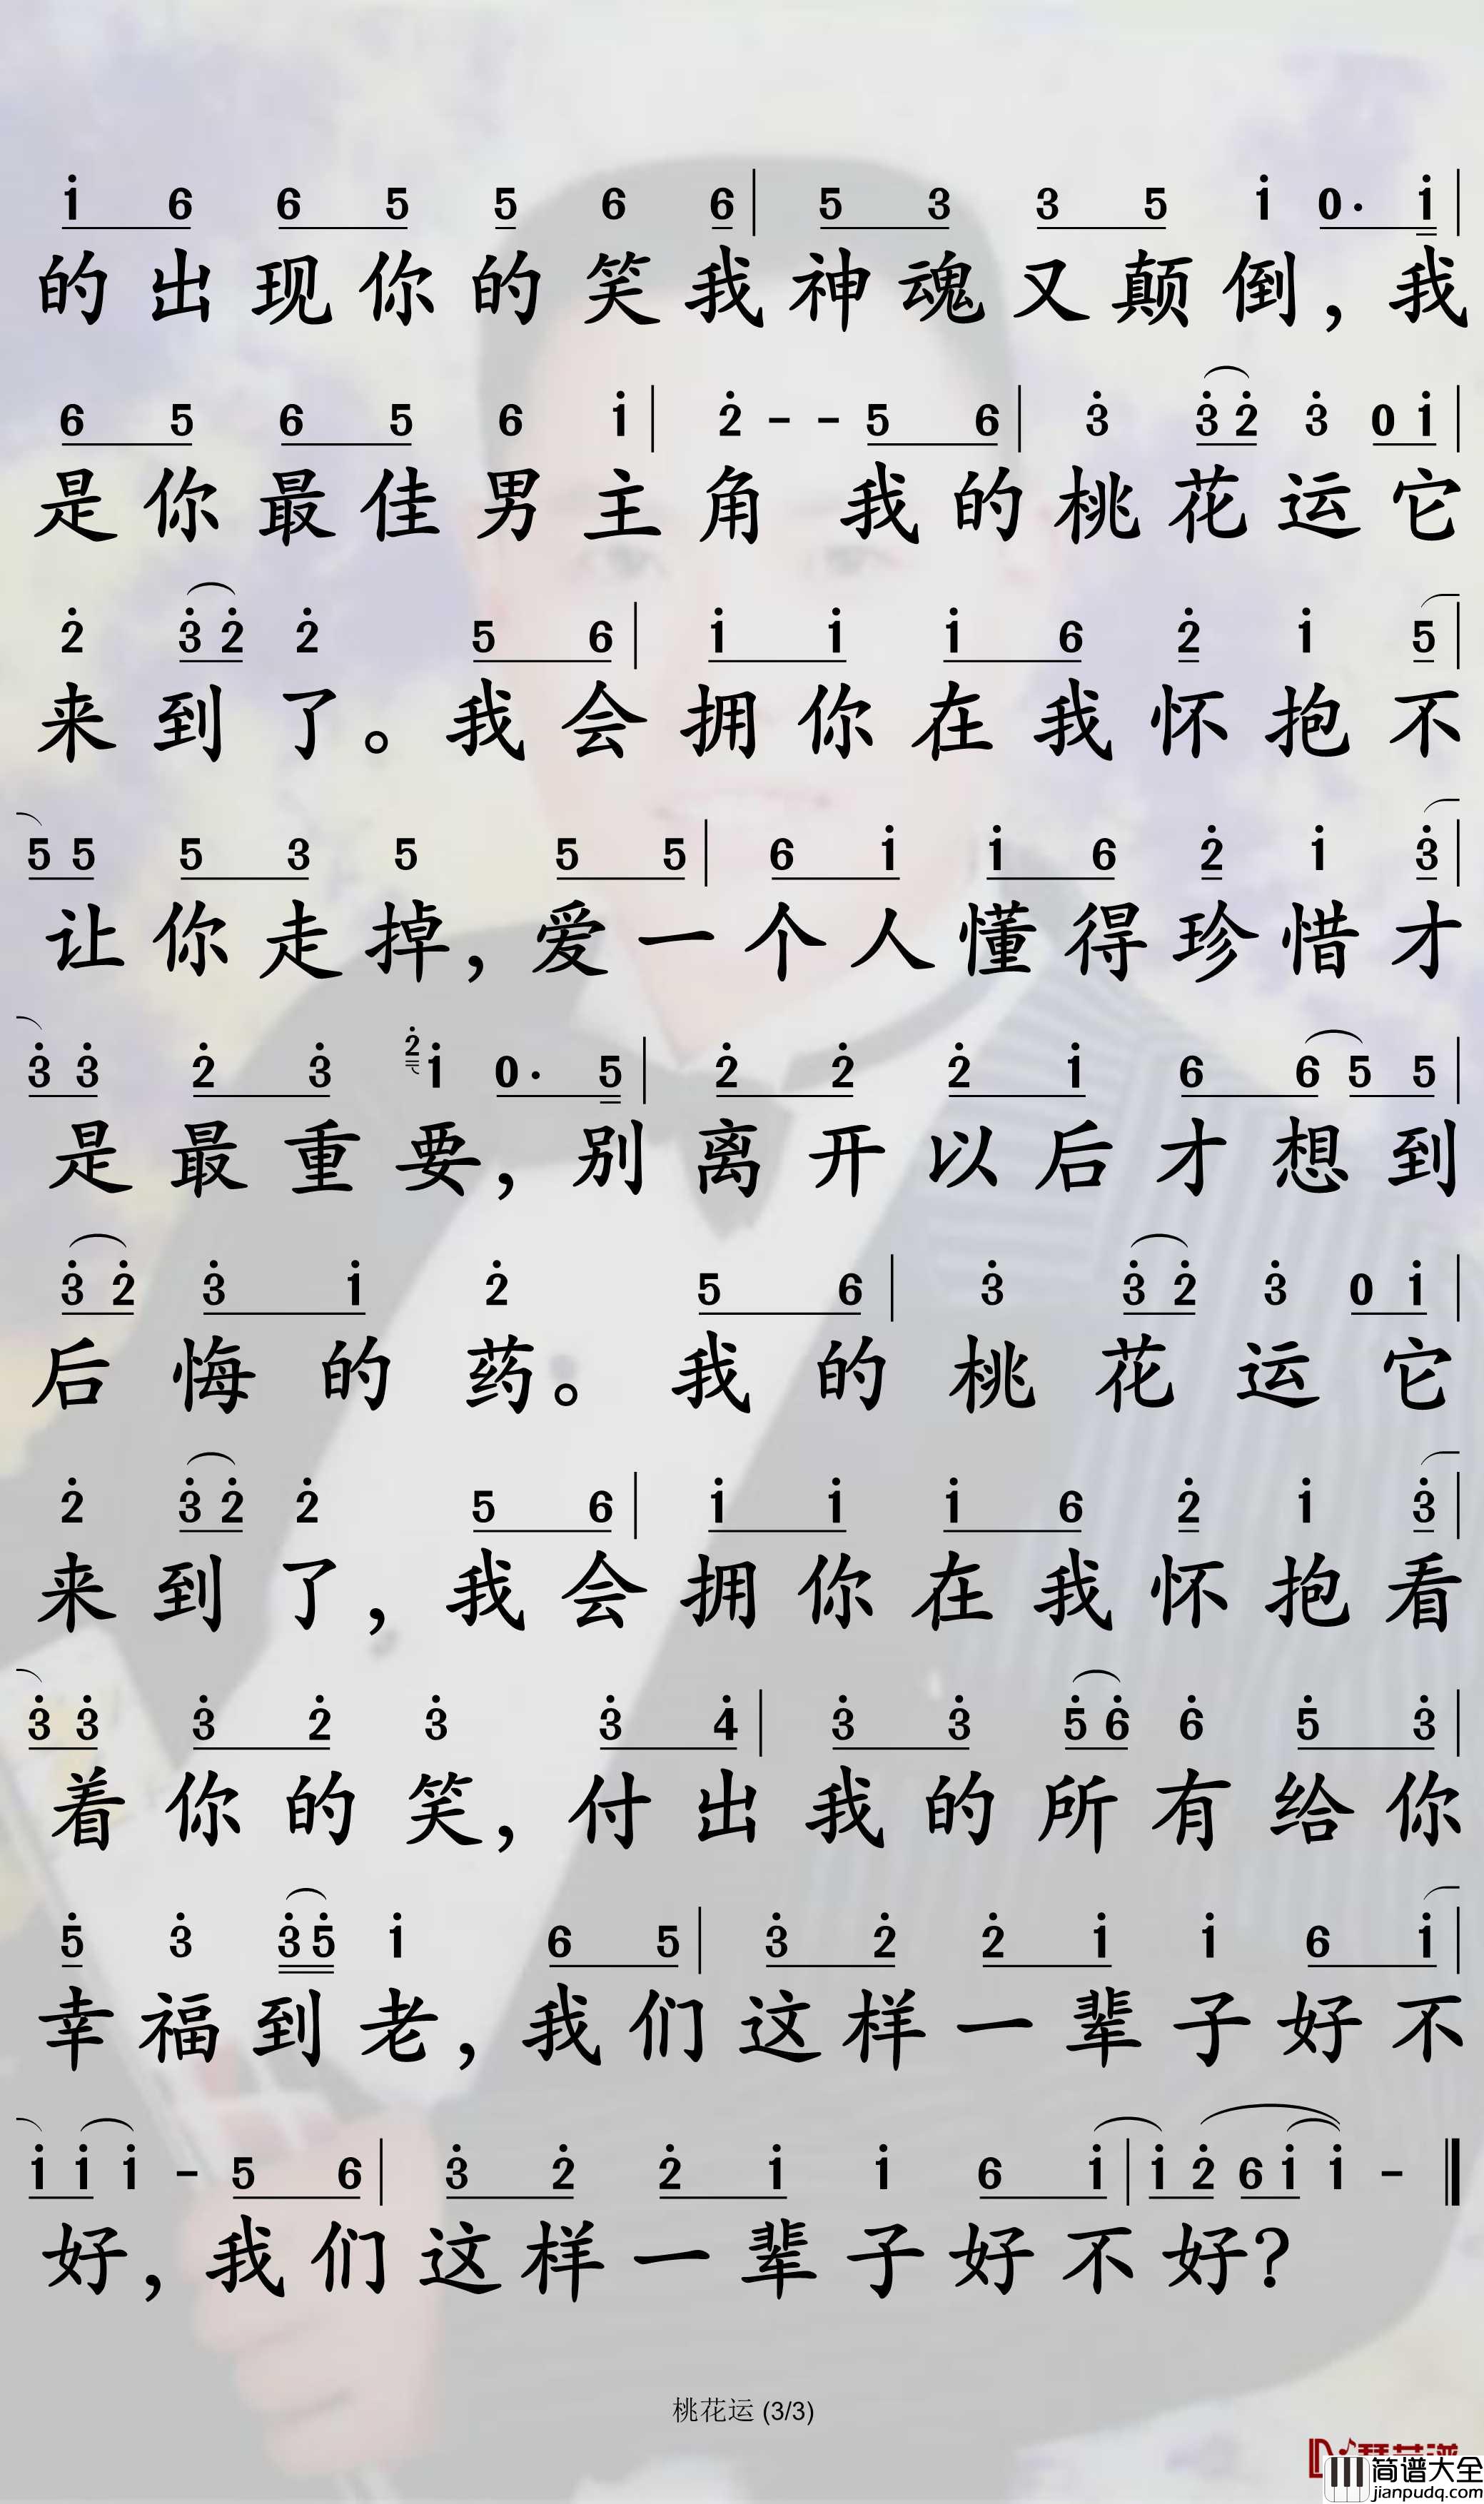 i 6 6 5 5 6 6 | 5 3 3 5 i 0· i |
的出现你的笑我神魂又颠倒，我
6 5 6 5 6 i | 2 - - 5 6 | 3 3 2 3 0 i |
是你最佳男主角 我的桃花运它
2 3 2 2 5 6 | i i i 6 2 i 5 |
来到了。我会拥你在我怀抱不
5 5 5 3 5 5 5 | 6 i i 6 2 i 3 |
让你走掉，爱一个人懂得珍惜才
3 3 2 3 2 i 0· 5 | 2 2 2 i 6 6 5 5 |
是最重要，别离开以后才想到
3 2 3 i 2 5 6 | 3 3 2 3 0 i |
后悔的药。我的桃花运它
2 3 2 2 5 6 | i i i 6 2 i 3 |
来到了，我会拥你在我怀抱看
3 3 3 2 3 3 4 | 3 3 5 6 6 5 3 |
着你的笑，付出我的所有给你
5 3 3 5 i 6 5 | 3 2 2 i i 6 i |
幸福到老，我们这样一辈子好不
i i i - 5 6 | 3 2 2 i i 6 i | i 2 6 i i - ‖
好，我们这样一辈子好不好？
桃花运 (3/3)
简谱大全
jianpudq.com